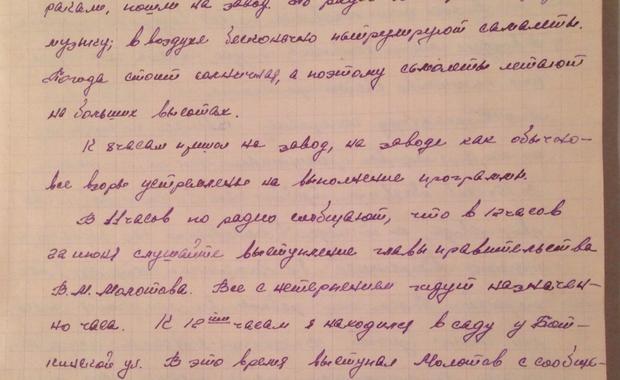 ракам, пошли на завод. По радио
музыку; в воздухе бесконечно патрулируют самолеты.
Погода стоит солнечная, а поэтому самолеты летают
на больших высотах.
К 8 часам пришел на завод, на заводе как обычно-
все взоры устремлены на выполнение программы.
В 11 часов по радио сообщают, что в 12 часов
слушайте выступление главы правительства
В.М. Молотова. Все с нетерпением ждут назначен-
но часа. К 12тим часам я находился в саду у Бот-
кинской ул. В это время выступал Молотов с сообще-